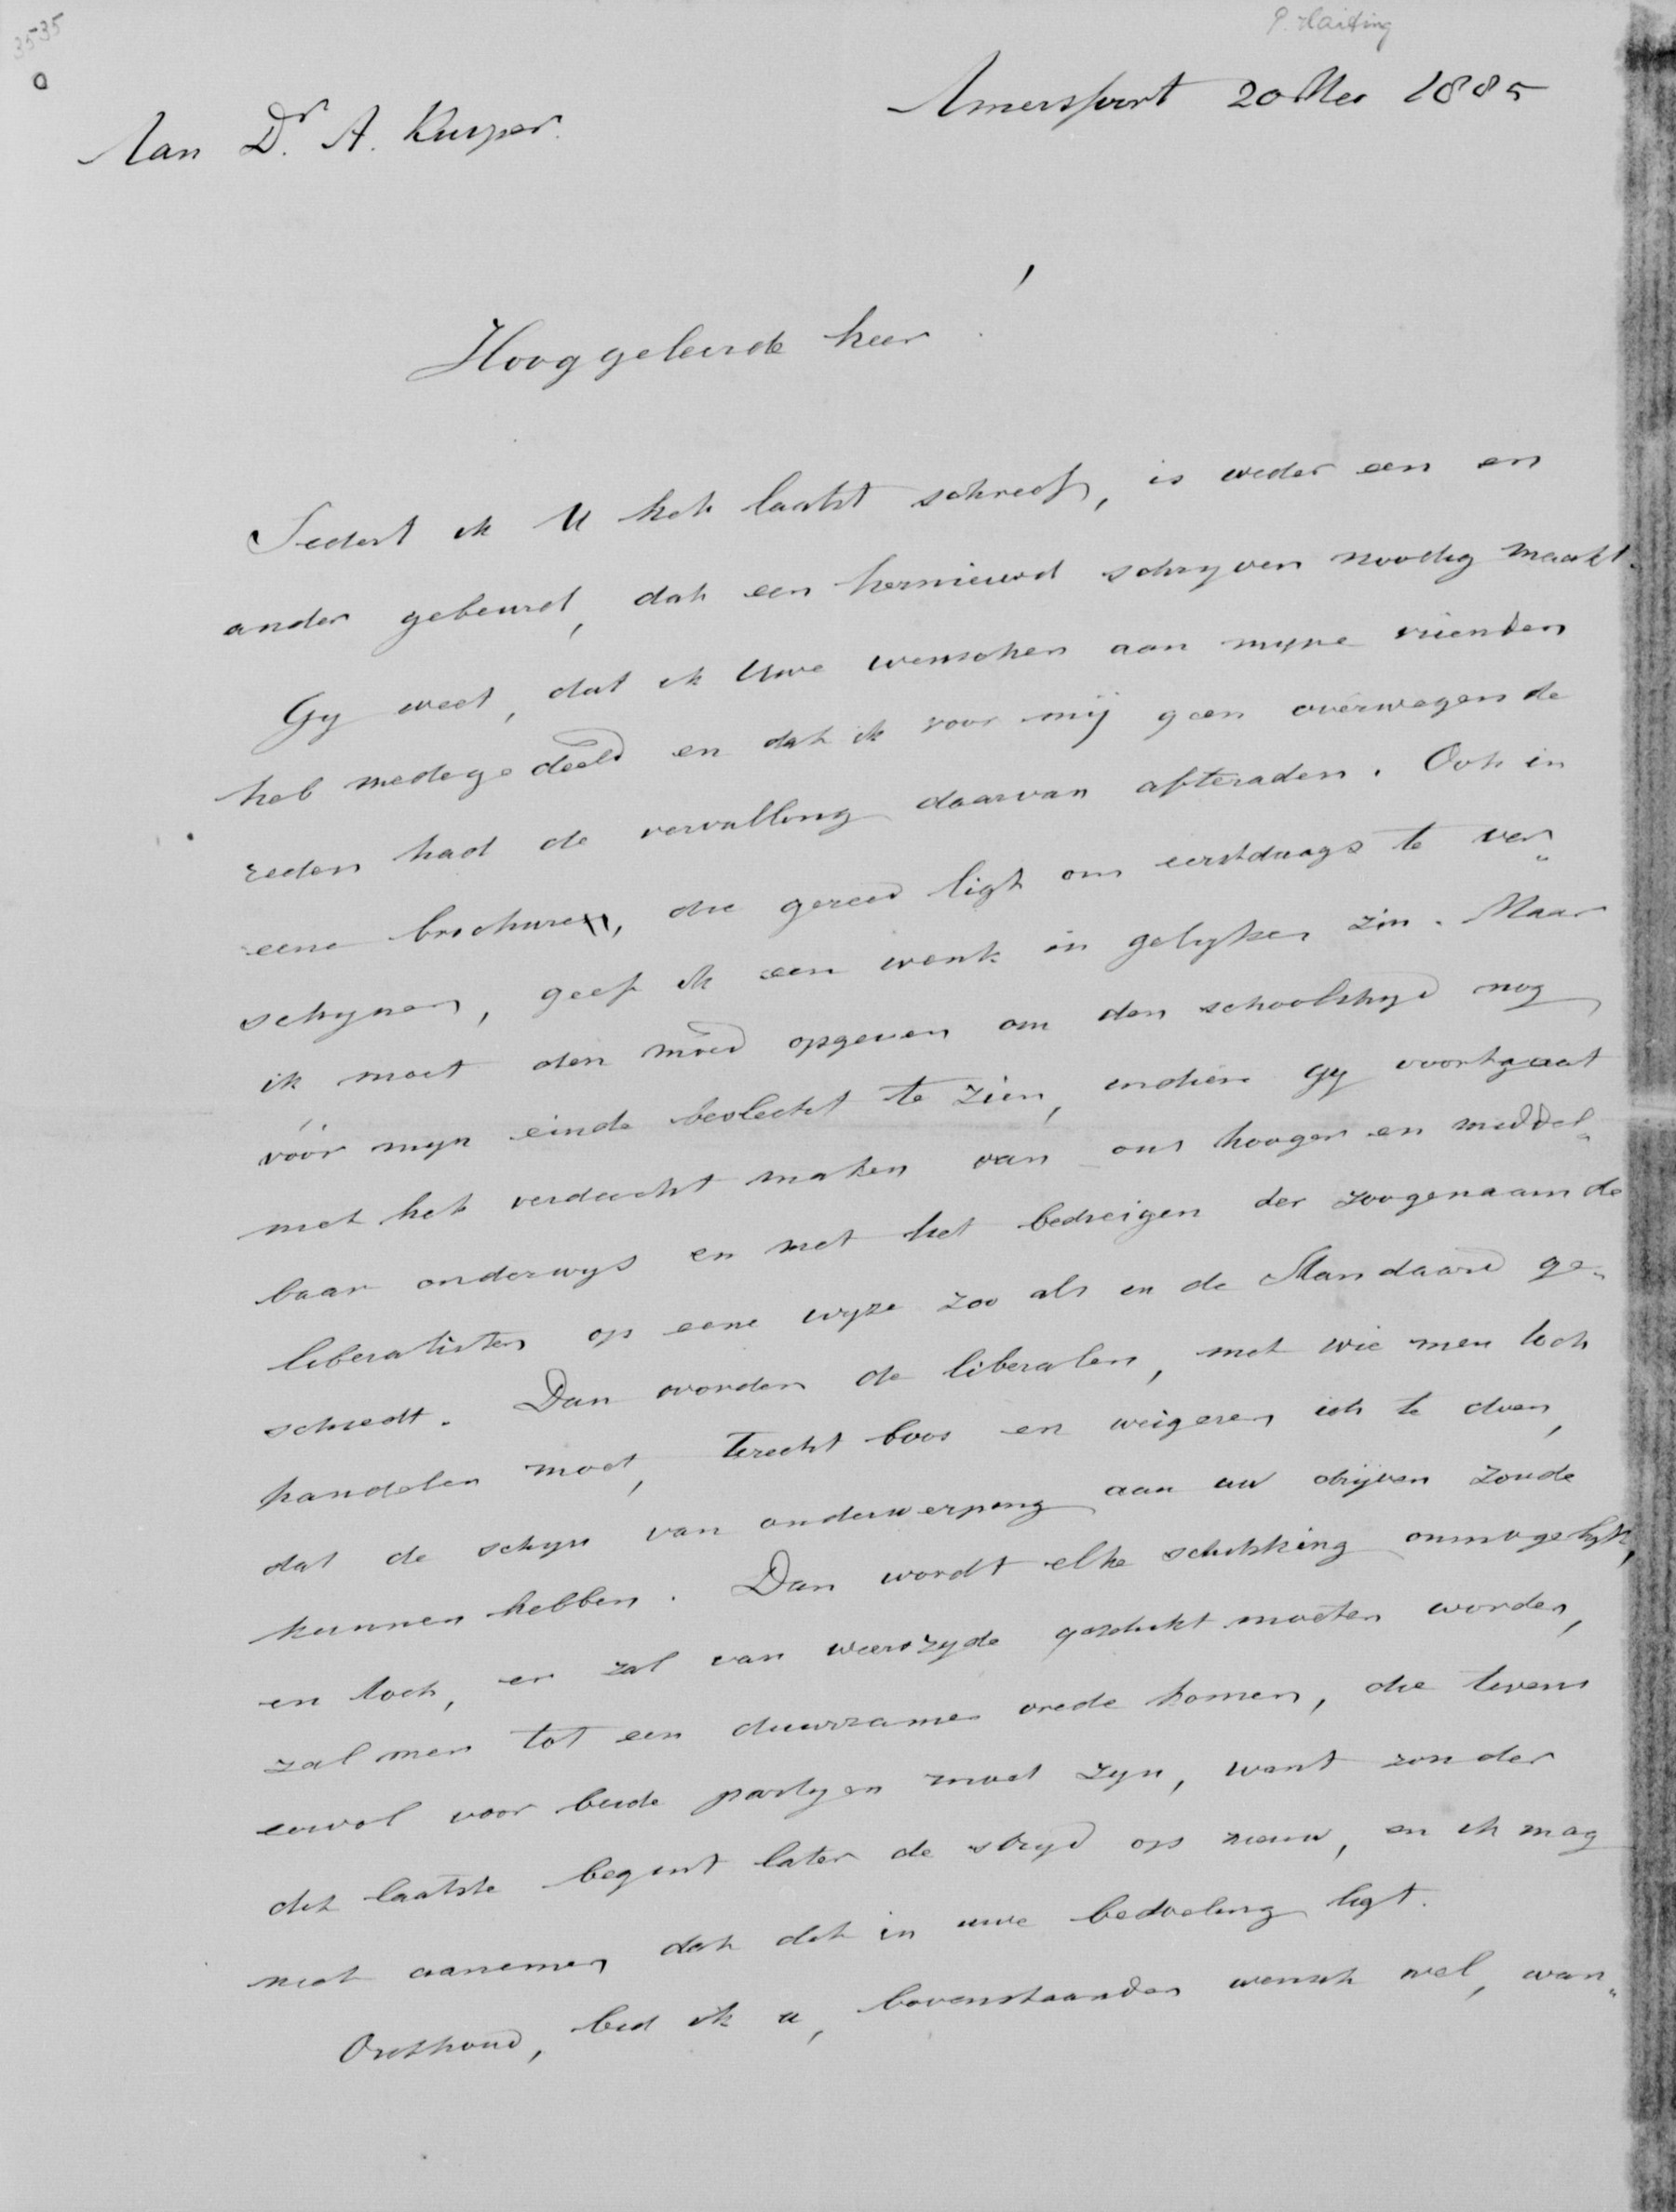 3535
P. Harting
Amersfoort 20 Mei 1885
Aan Dr. A. Kuyper.
Hooggeleerde heer!
Sedert ik U het laatst schreef, is weder een en
ander gebeurd, dat een hernieuwd schryven noodig maakt.
Gy weet, dat ik Uwe wenschen aan myne vrienden
heb medegedeeld en dat ik voor mij geen overwegende
reden had de vervulling daarvan afteraden. Ook in
eene brochure, die gereed ligt om eerstdaags te ver„
schynen, geef ik een wenk in gelyken zin. Maar
ik moet den moed opgeven om den schoolstryd nog
vóór myn einde beslecht te zien, indien gy voortgaat
met het verdacht maken van ons hooger en middel„
baar onderwys en met het bedreigen der zoogenaamde
liberalisten op eene wyze zoo als in de Standaard ge„
schiedt. Dan worden de liberalen, met wie men toch
handelen moet, terecht boos en weigeren iets te doen,
dat de schyn van onderwerping aan uw drijven zoude
kunnen hebben. Dan wordt elke schikking onmogelyk,
en toch, er zal van weerszyde geschikt moeten worden,
zal men tot een duurzamen vrede komen, die tevens
eervol voor beide partyen moet zyn, want zonder
dit laatste begint later de stryd op nieuw, en ik mag
niet aannemen dat dit in uwe bedoeling ligt.
Onthoud, bid ik u, bovenstaanden wensch wel, wan„